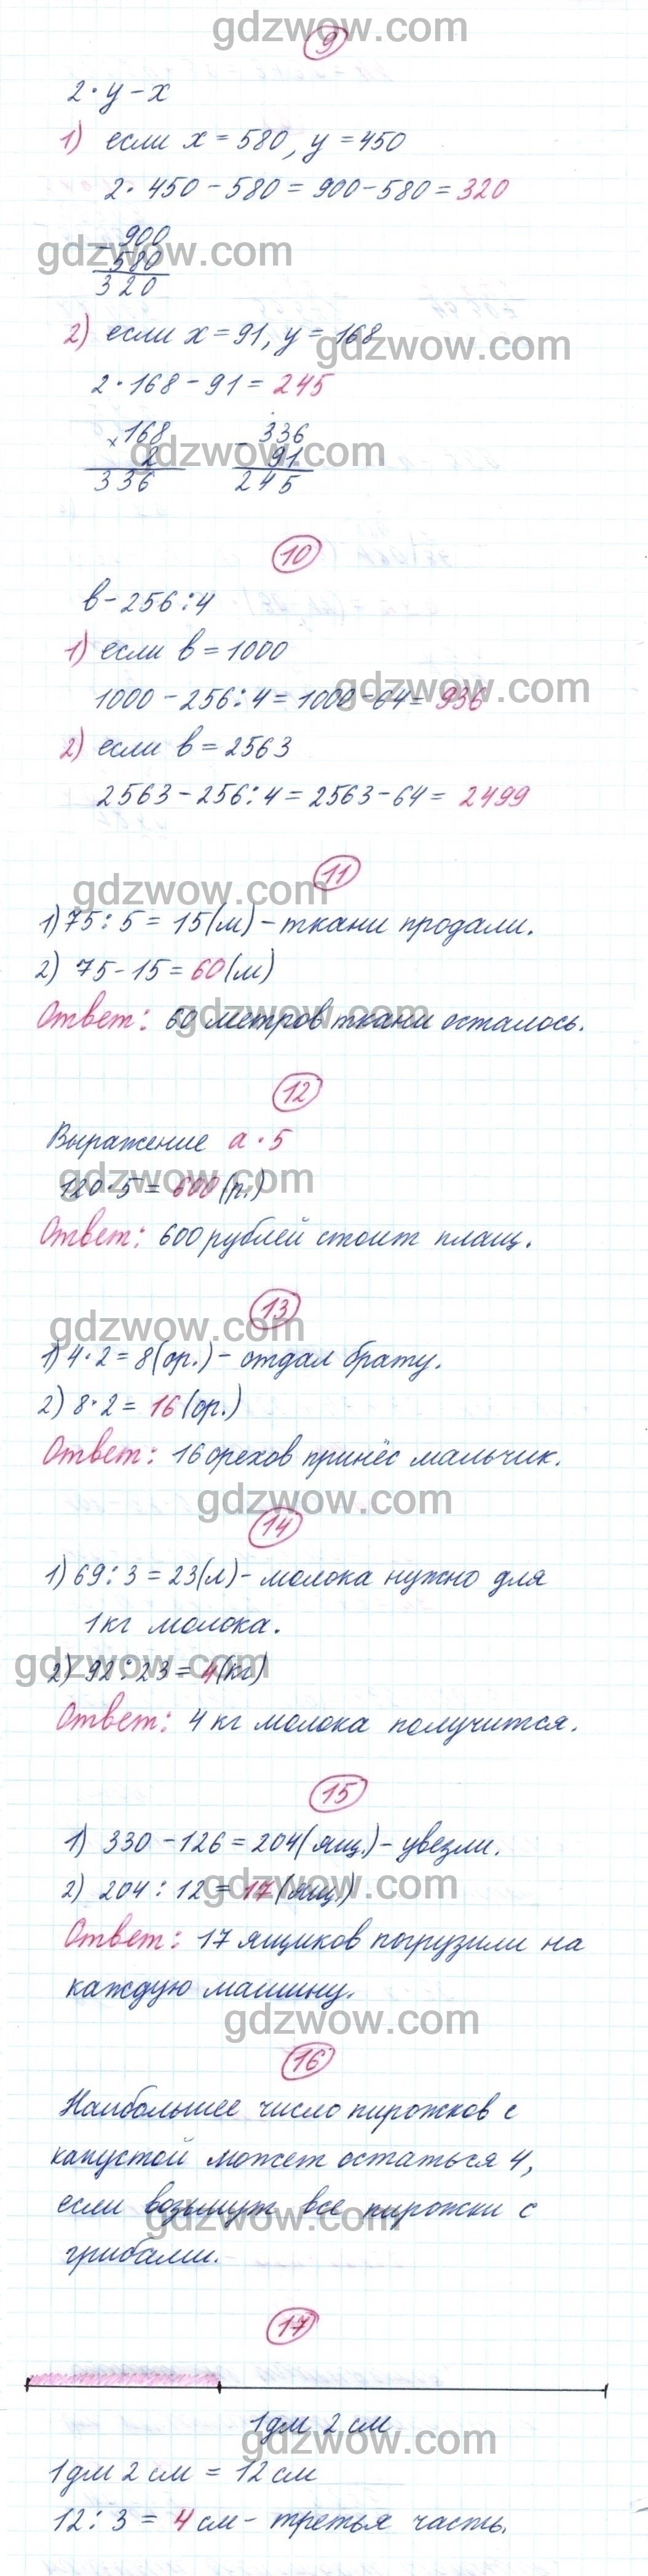 gdzwow.com
9
2·y-x
1) если x=580, y=450
2·450-580=900-580=320
gdzwow.com
- 900
580
320
2) если x=91, y=168
gdzwow.com
2·168-91=245
×168 - 336
gdzwow.com
2 91
336 245
10
в-256:4
1) если в=1000
gdzwow.com
1000-256:4=1000-64=936
2) если в=2563
2563-256:4=2563-64=2499
11
gdzwow.com
1) 75:5=15(м)-ткани продали.
2) 75-15=60(м)
gdzwow.com
Ответ: 60 метров ткани осталось.
12
Выражение а·5
gdzwow.com
120·5=600(р.)
Ответ: 600 рублей стоит плащ.
13
gdzwow.com
1) 4·2=8(ор.)-отдал брату.
2) 8·2=16(ор.)
Ответ: 16 орехов принёс мальчик.
gdzwow.com
14
1) 69:3=23(л)-молока нужно для
1кг молока.
gdzwow.com
2) 92:23=4(кг)
Ответ: 4 кг молока получится.
15
1) 330-126=204(ящ.)-увезли.
gdzwow.com
2) 204:12=17(ящ.)
Ответ: 17 ящиков погрузили на
каждую машину.
gdzwow.com
16
Наибольшее число пирожков с
капустой может остаться 4,
если возьмут все пирожки с
gdzwow.com
грибами.
17
1дм 2 см
gdzwow.com
1дм 2 см = 12 см
12:3=4 см-третья часть.